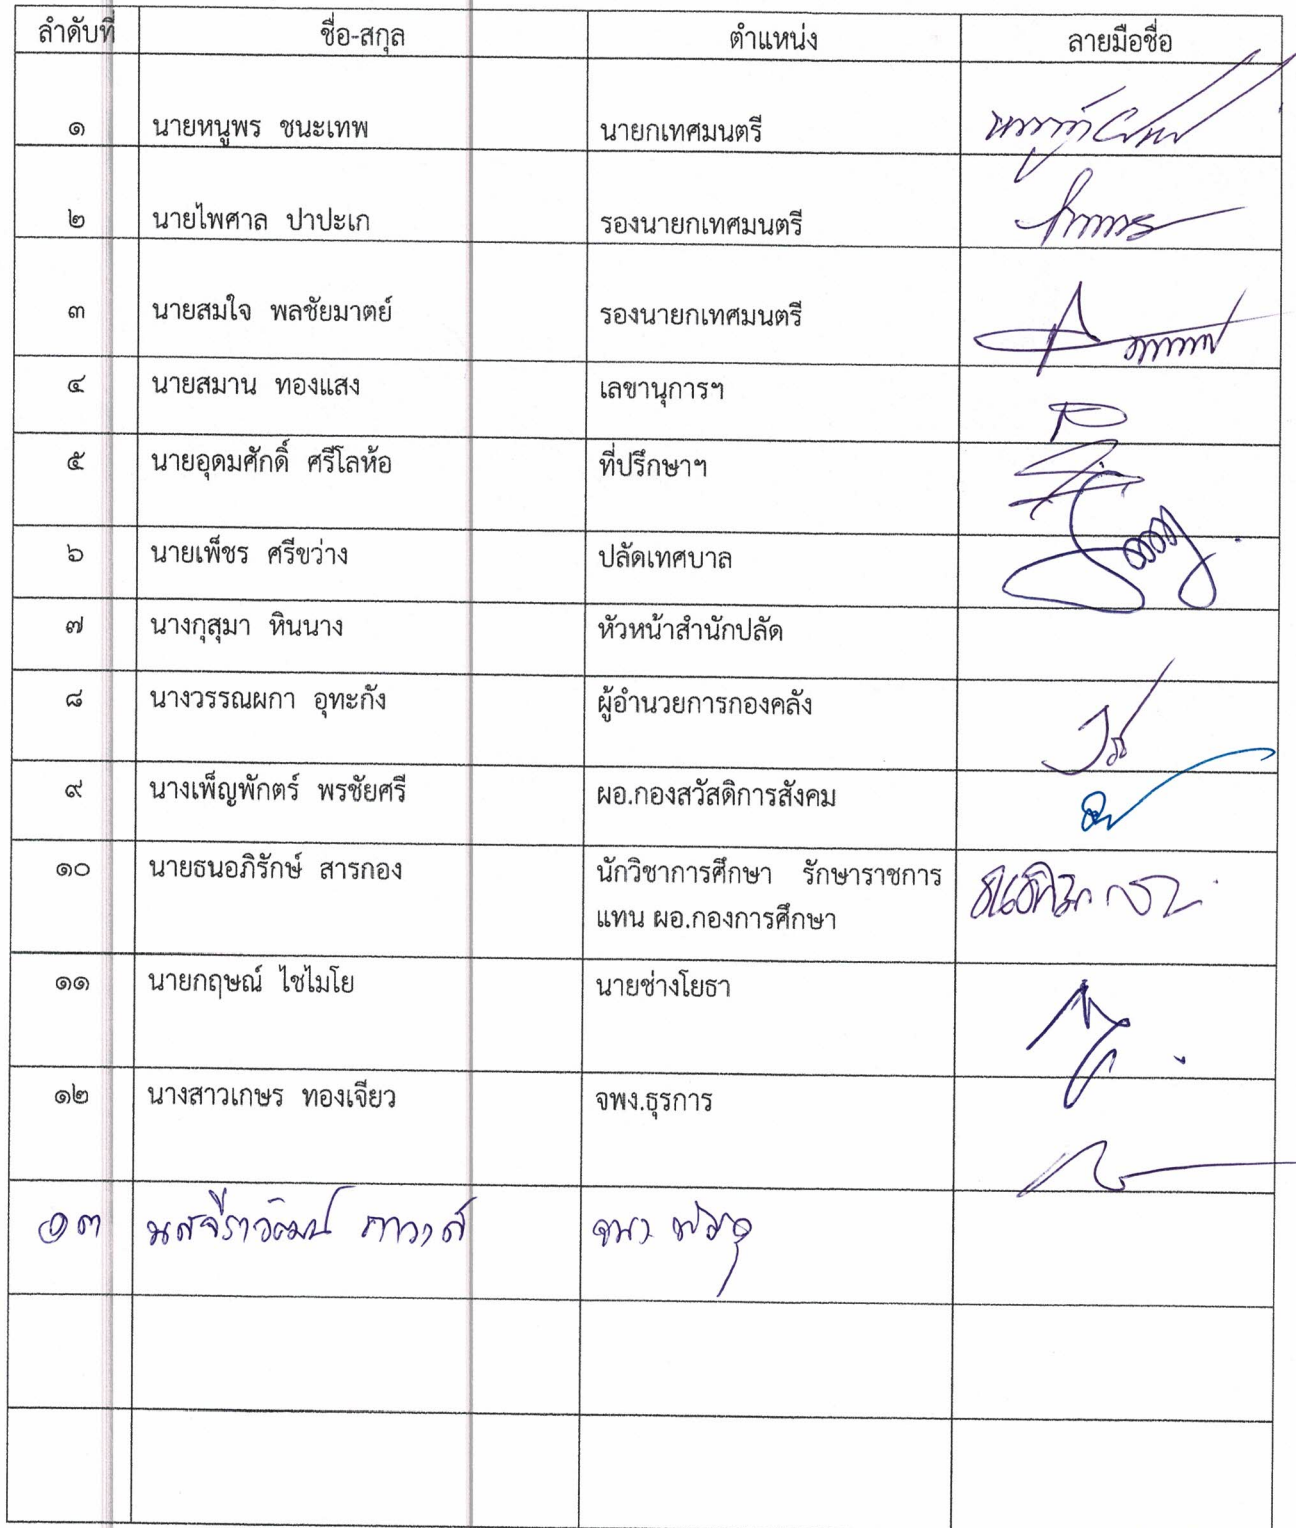 ลำดับที่ ชื่อ-สกุล ตำแหน่ง ลายมือชื่อ
๑ นายหนูพร ชนะเทพ นายกเทศมนตรี
๒ นายไพศาล ปาปะเก รองนายกเทศมนตรี
๓ นายสมใจ พลชัยมาตย์ รองนายกเทศมนตรี
๔ นายสมาน ทองแสง เลขานุการฯ
๕ นายอุดมศักดิ์ ศรีโลห้อ ที่ปรึกษาฯ
๖ นายเพ็ชร ศรีขว่าง ปลัดเทศบาล
๗ นางกุสุมา หินนาง หัวหน้าสำนักปลัด
๘ นางวรรณผกา อุทะกัง ผู้อำนวยการกองคลัง
๙ นางเพ็ญพักตร์ พรชัยศรี ผอ.กองสวัสดิการสังคม
๑๐ นายธนอภิรักษ์ สารกอง นักวิชาการศึกษา รักษาราชการ
แทน ผอ.กองการศึกษา
๑๑ นายกฤษณ์ ไชไมโย นายช่างโยธา
๑๒ นางสาวเกษร ทองเจียว จพง.ธุรการ
๑๓